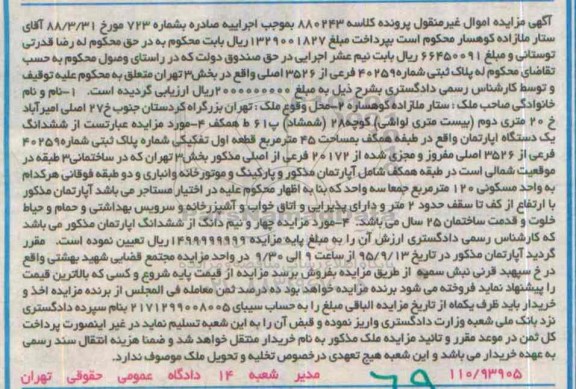 آگهی مزایده اموال غیرمنقول پرونده کلاسه ۸۸۰۲۴۳ بموجب اجراییه صادره بشماره ۷۲۳ مورخ ۸۸/۳/۳۱ آقای
ستار ملازاده کوهسار محکوم است بپرداخت مبلغ ۱۳۲۹۰۰۱۸۲۷ ریال بابت محکوم به در حق محکوم له رضا قدرتی
توستانی و مبلغ ۶۶۴۵۰۰۹۱ ریال بابت نیم عشر اجرایی در حق صندوق دولت که در راستای وصول محکوم به حسب
تقاضای محکوم له پلاک ثبتی شماره ۴۰۲۵۹ فرعی از ۳۵۲۶ اصلی واقع در بخش ۳ تهران متعلق به محکوم علیه توقیف
و توسط کارشناس رسمی دادگستری بشرح ذیل به مبلغ ۲۰۰۰۰۰۰۰۰۰ ریال ارزیابی گردیده است. ۱-نام و نام
خانوادگی صاحب ملک: ستار ملازاده کوهساره ۲-محل وقوع ملک: تهران بزرگراه کردستان جنوب خ ۲۷ اصلی امیرآباد
خ ۲۰ متری دوم (بیست متری لواشی) کوچه ۲۸ (شمشاد) پ ۶۱ ط همکف ۴-مورد مزایده عبارتست از ششدانگ
یک دستگاه آپارتمان واقع در طبقه همکف بمساحت ۴۵ مترمربع قطعه اول تفکیکی شماره پلاک ثبتی شماره ۴۰۲۵۹
فرعی از ۳۵۲۶ اصلی مفروز و مجزی شده از ۲۰۱۷۲ فرعی از اصلی مذکور بخش ۳ تهران که در ساختمانی ۳ طبقه در
موقعیت شمالی است در طبقه همکف شامل آپارتمان مذکور و پارکینگ و موتورخانه وانباری و دو طبقه فوقانی هرکدام
به واحد مسکونی ۱۲۰ مترمربع جمعا سه واحد که بنا به اظهار محکوم علیه در اختیار مستاجر می باشد آپارتمان مذکور
با ارتفاع از کف تا سقف حدود ۲ متر و دارای پذیرایی و اتاق خواب و آشپزخانه و سرویس بهداشتی و حمام و حیاط
خلوت و قدمت ساختمان ۲۵ سال می باشد. ۴-مورد مزایده چهار و نیم دانگ از ششدانگ آپارتمان مذکور می باشد
که کارشناس رسمی دادگستری ارزش آن را به مبلغ پایه مزایده ۱۴۹۹۹۹۹۹۹۹ ریال تعیین نموده است. مقرر
گردید آپارتمان مذکور در تاریخ ۹۵/۹/۱۳ از ساعت ۹ الی ۹/۳۰ در واحد مزایده مجتمع قضایی شهید بهشتی واقع
در خ سپهبد قرنی نبش سمیه از طریق مزایده بفروش برسد مزایده از قیمت پایه شروع و کسی که بالاترین قیمت
را پیشنهاد نماید فروخته می شود برنده مزایده خواهد بود ده درصد ثمن معامله فی المجلس از برنده مزایده اخذ و
خریدار باید ظرف یکماه از تاریخ مزایده الباقی مبلغ را به حساب سیبای ۲۱۷۱۲۹۹۰۰۸۰۰۵ بنام سپرده دادگستری
نزد بانک ملی شعبه وزارت دادگستری واریز نموده و قبض آن را به این شعبه تسلیم نماید در غیر اینصورت پرداخت
کل ثمن در موعد مقرر و تائید مزایده ملک مذکور به نام خریدار منتقل خواهد شد و ضمنا هزینه انتقال سند رسمی
به عهده خریدار می باشد و این شعبه هیچ تعهدی درخصوص تخلیه و تحویل ملک موصوف ندارد.
۱۱۰/۹۳۹۰۵ مدیر شعبه ۱۴ دادگاه عمومی حقوقی تهران